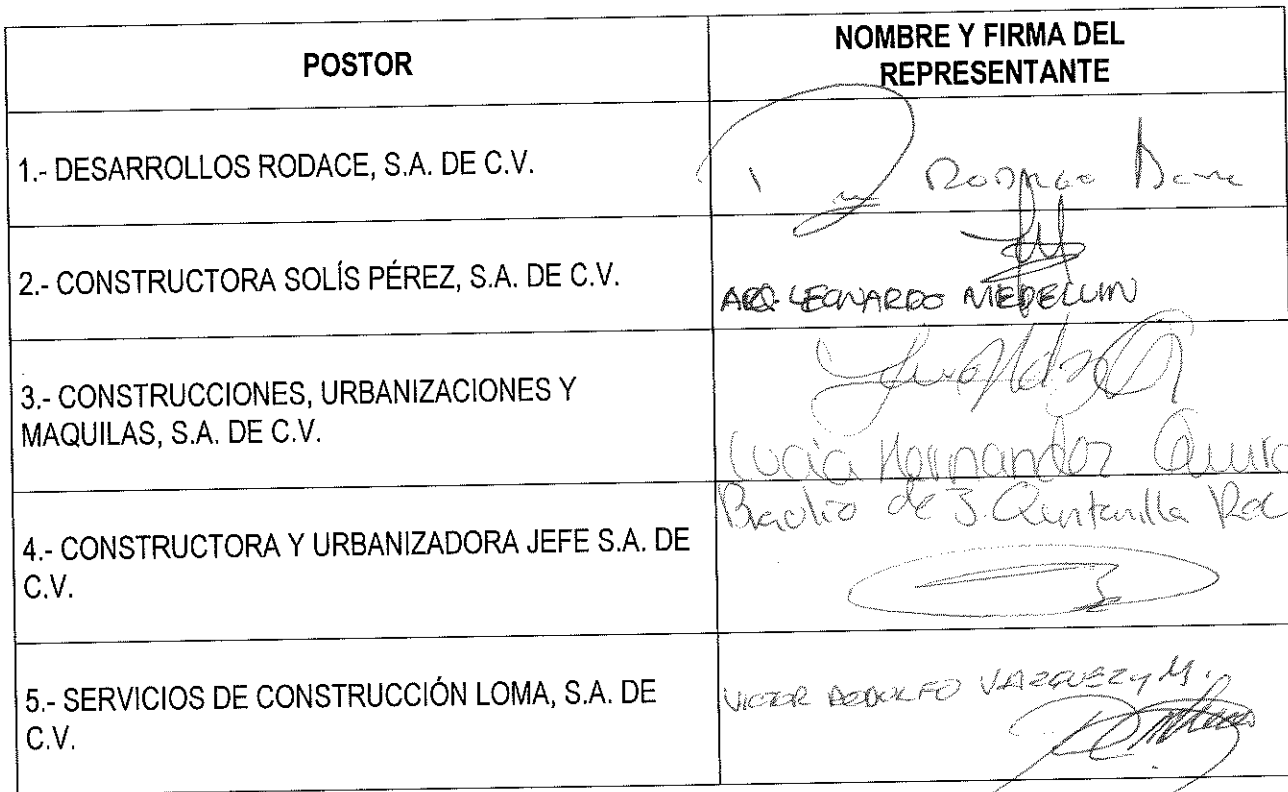 POSTOR
NOMBRE Y FIRMA DEL
REPRESENTANTE
1.- DESARROLLOS RODACE, S.A. DE C.V.
Rodrigo
2.- CONSTRUCTORA SOLÍS PÉREZ, S.A. DE C.V.
ARQ. LEONARDO MEDELLIN
3.- CONSTRUCCIONES, URBANIZACIONES Y
MAQUILAS, S.A. DE C.V.
Lucia Hernandez
4.- CONSTRUCTORA Y URBANIZADORA JEFE S.A. DE
C.V.
Braulio de J. Quintanilla
5.- SERVICIOS DE CONSTRUCCIÓN LOMA, S.A. DE
C.V.
VICTOR RODOLFO VAZQUEZ y M.